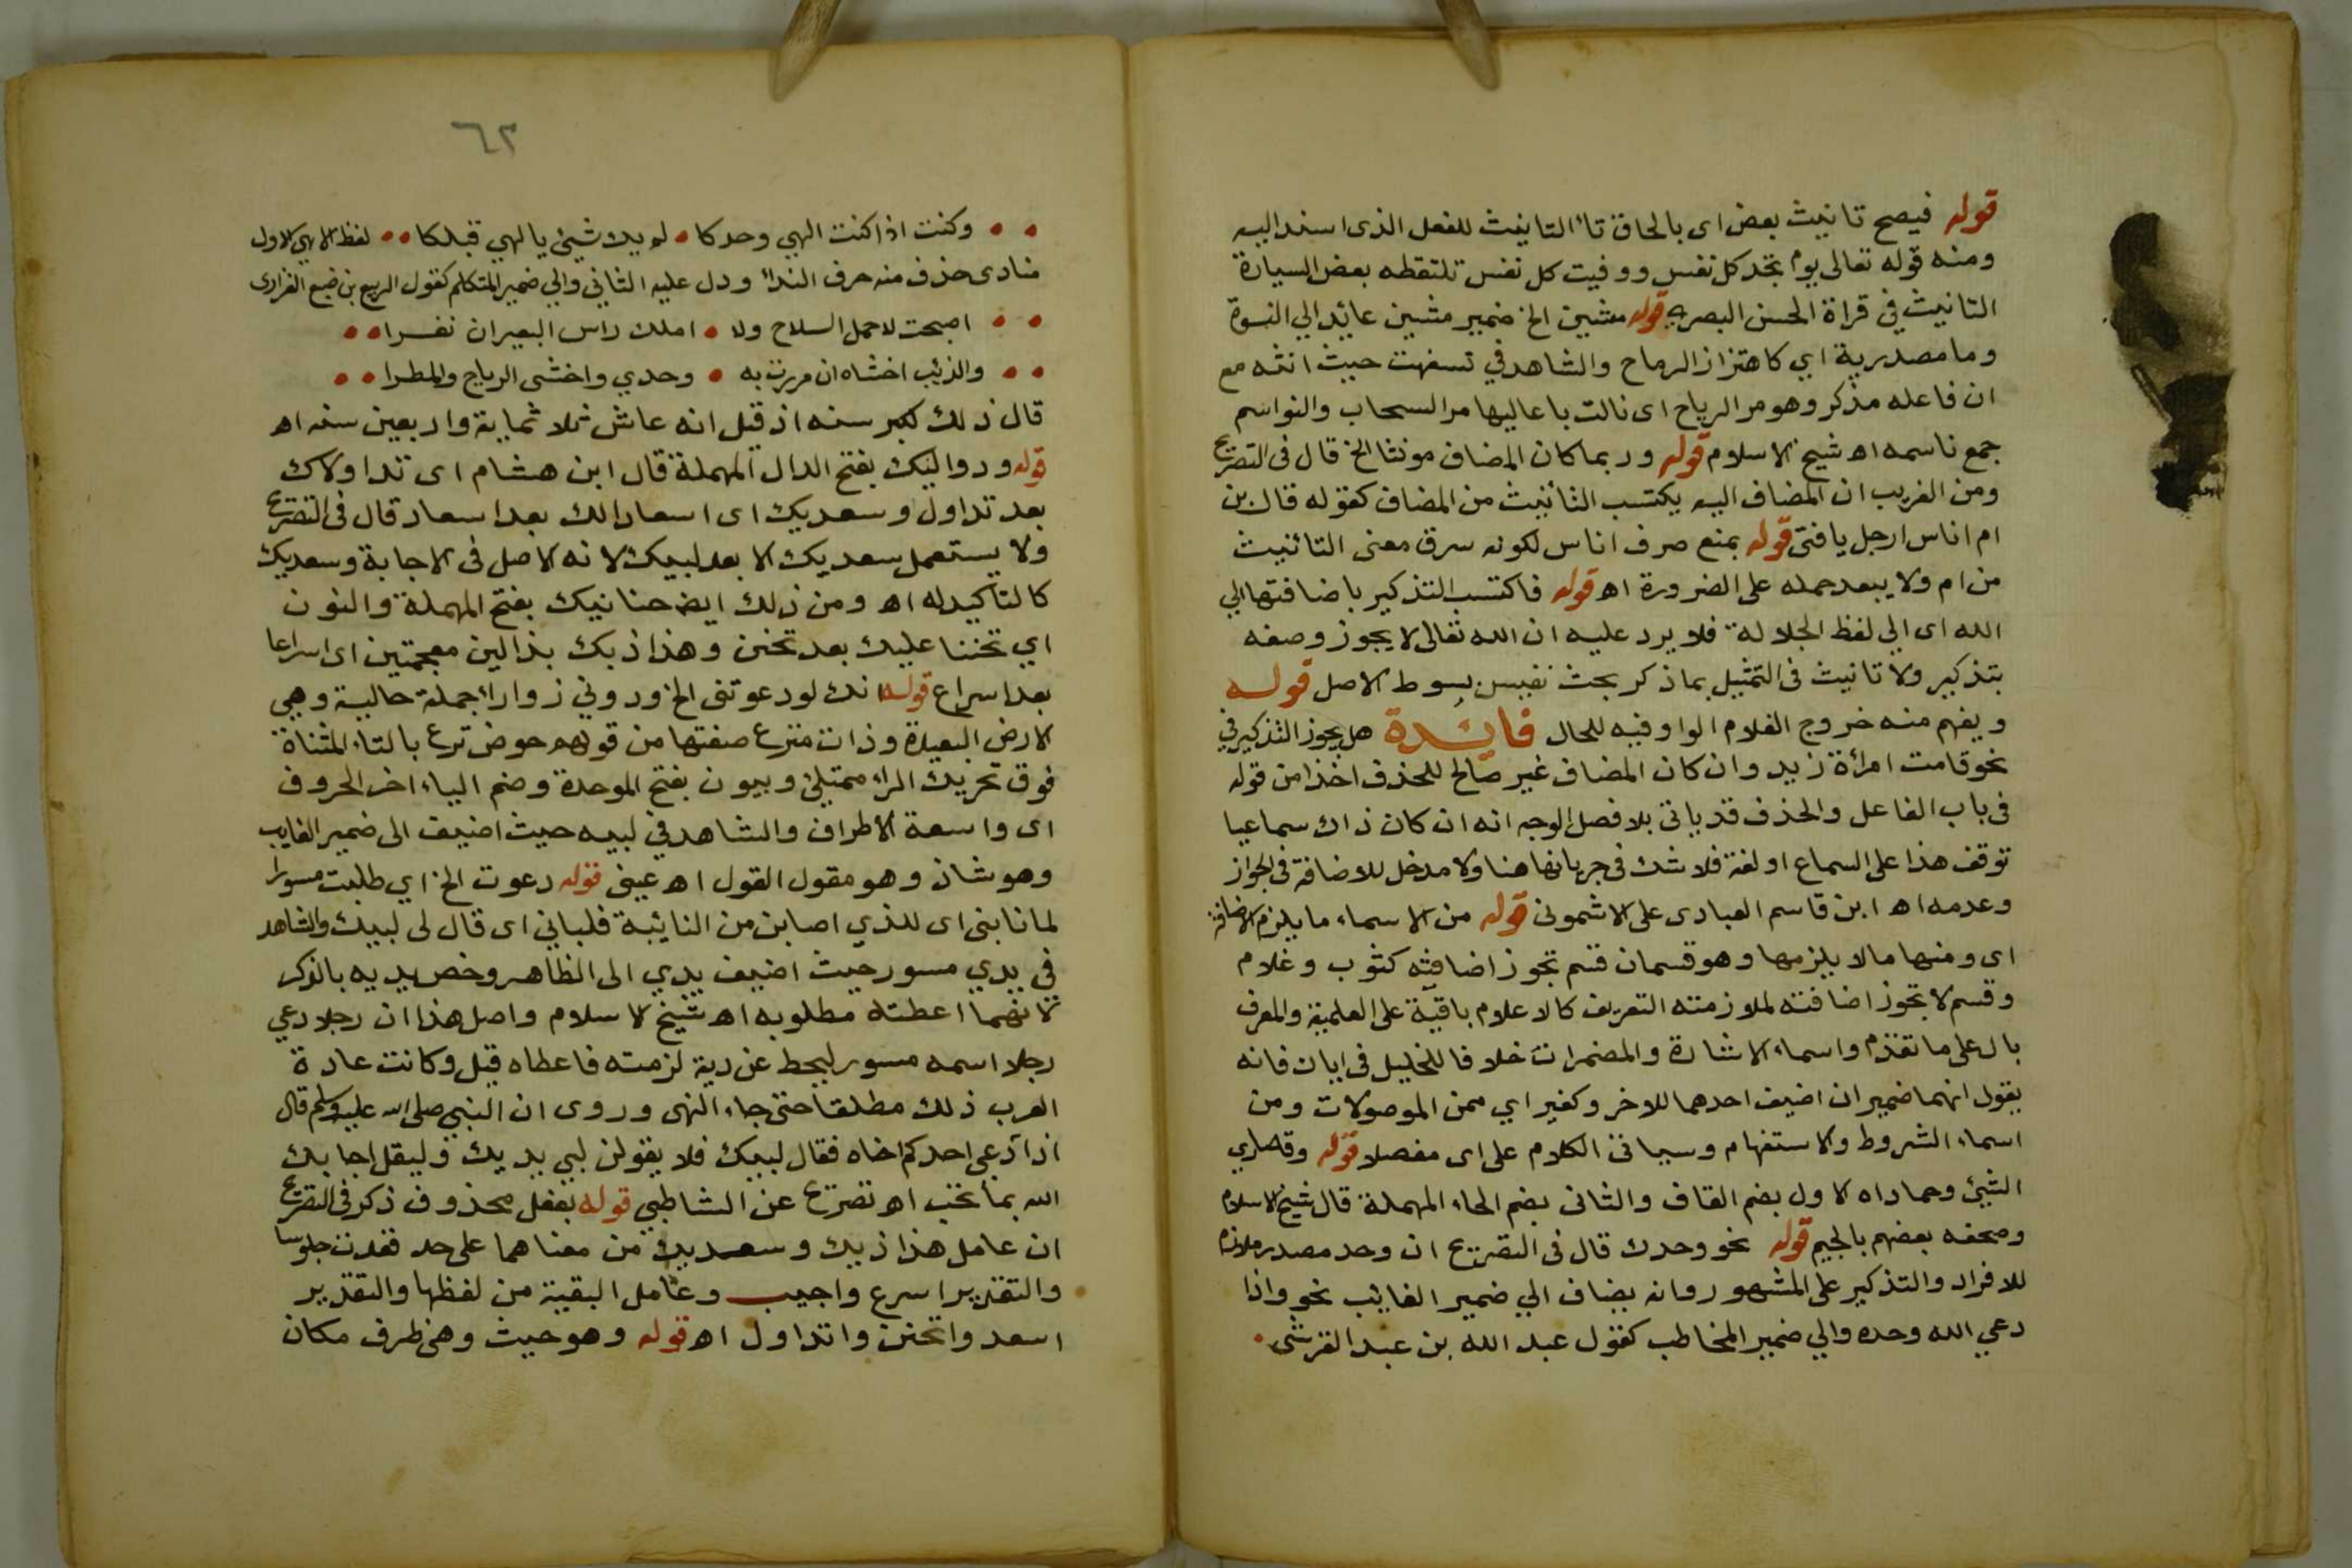 قوله فيصح تانيث بعض اى بالحاق تاء التانيث للفعل الذى اسند اليه
ومنه قوله تعالى يوم تجد كل نفس ووفيت كل نفس تلتقطه بعض السيارة
التانيث فى قراة الحسن البصرى قوله مشين الخ ضمير مشين عائد الي النسوة
وما مصدرية اي كاهتزاز الرماح والشاهد في تسفهت حيث انثه مع
ان فاعله مذكر وهو مر الرياح اى نالت باعاليها مر السحاب والنواسم
جمع ناسمه اه شيخ الاسلام قوله وربما كان المضاف مونثا الخ قال فى التصريح
ومن الغريب ان المضاف اليه يكتسب التأنيث من المضاف كقوله قال بن
ام اناس ارجل يا فتى قوله بمنع صرف اناس لكونه سرق معنى التائنيث
من ام ولا يبعد حمله على الضرورة اه قوله فاكتسب التذكير باضافتها الي
الله اى الي لفظ الجلالة فلا يرد عليه ان الله تعالى لا يجوز وصفه
بتذكير ولا تانيث فى التمثيل بما ذكر بحث نفيس بسوط الاصل قوله
ويفهم منه خروج الغلام الواو فيه للحال فايدة هل يجوز التذكير في
نحو قامت امرأة زيد وان كان المضاف غير صالح للحذف اخذا من قوله
فى باب الفاعل والحذف قد ياتى بلا فصل الوجه انه ان كان ذاك سماعيا
توقف هذا على السماع او لغة فلا شك فى جريانها هنا ولا مدخل للاضافة فى الجواز
وعدمه اه ابن قاسم العبادى على الاشمونى قوله من الاسماء ما يلزم الاضافة
اى ومنها ما لا يلزمها وهو قسمان قسم تجوز اضافته كثوب وغلام
وقسم لا تجوز اضافته لملازمته التعريف كالاعلام باقية على العلمية والمعرف
بال على ما تقدم واسماء الاشارة والمضمرات خلافا للخليل فى اياك فانه
يقول انهما ضميران اضيف احدهما للاخر وكغير اي من الموصولات ومن
اسماء الشروط والاستفهام وسياتى الكلام على اى مفصلا قوله وقصاري
الشيئ وحماداه الاول بضم القاف والثانى بضم الحاء المهملة قال شيخ الاسلام
وصحفه بعضهم بالجيم قوله نحو وحدك قال فى التصريح ان وحد مصدر ملازم
للافراد والتذكير على المشهور وانه يضاف الي ضمير الغائب نحو واذا
دعي الله وحده والي ضمير المخاطب كقول عبد الله بن عبد القرشى
٦٢
وكنت اذ كنت الهي وحدكا لم يك شيئ يا الهي قبلكا لفظ الاهى الاول
منادى حذف منه حرف النداء ودل عليه الثاني والي ضمير المتكلم كقول الربيع بن ضبع الفزارى
اصبحت لا حمل السلاح ولا املك راس البعير ان نفرا
والذئب اخشاه ان مررت به وحدي واخشى الرياح والمطرا
قال ذلك لكبر سنه اذ قيل انه عاش ثلاثماية واربعين سنه اه
قوله ودواليك بفتح الدال المهملة قال ابن هشام اى تداولاك
بعد تداول وسعديك اى اسعادا لك بعد اسعاد قال فى التصريح
ولا يستعمل سعديك الا بعد لبيك لانه الاصل فى الاجابة وسعديك
كالتاكيد له اه ومن ذلك ايض حنانيك بفتح المهملة والنون
اي تحننا عليك بعد تحنن وهذاذيك بذالين معجمتين اى اسراعا
بعد اسراع قوله انك لو دعوتنى الخ ودوني زوراء جملة حالية وهي
الارض البعيدة وذات منزع صفتها من قولهم حوض ترع بالتاء المثناة
فوق تحريك الراء ممتلئ وبيون بفتح الموحدة وضم الياء اخر الحروف
اى واسعة الاطراف والشاهد في لبيه حيث اضيف الى ضمير الغايب
وهو شاذ وهو مقول القول اه عينى قوله دعوت الخ اي طلبت مسورا
لما نابنى اى للذي اصابن من النائبة فلباني اى قال لى لبيك والشاهد
فى يدي مسور حيث اضيف يدي الى الظاهر وخص يديه بالذكر
لانهما اعطته مطلوبه اه شيخ الاسلام واصل هذا ان رجلا دعي
رجلا اسمه مسور ليحط عن دية لزمته فاعطاه قيل وكانت عادة
العرب ذلك مطلقا حتى جاء النهى وروى ان النبي صلى الله عليه وسلم قال
اذا دعى احدكم اخاه فقال لبيك فلا يقولن لبي يديك وليقل اجابك
الله بما تحب اه تصريح عن الشاطبي قوله بفعل محذوف ذكر فى التصريح
ان عامل هذاذيك وسعديك من معناهما على حد قعدت جلوسا
والتقدير اسرع واجيب وعامل البقية من لفظها والتقدير
اسعد واتحنن واتداول اه قوله وهو حيث وهى ظرف مكان